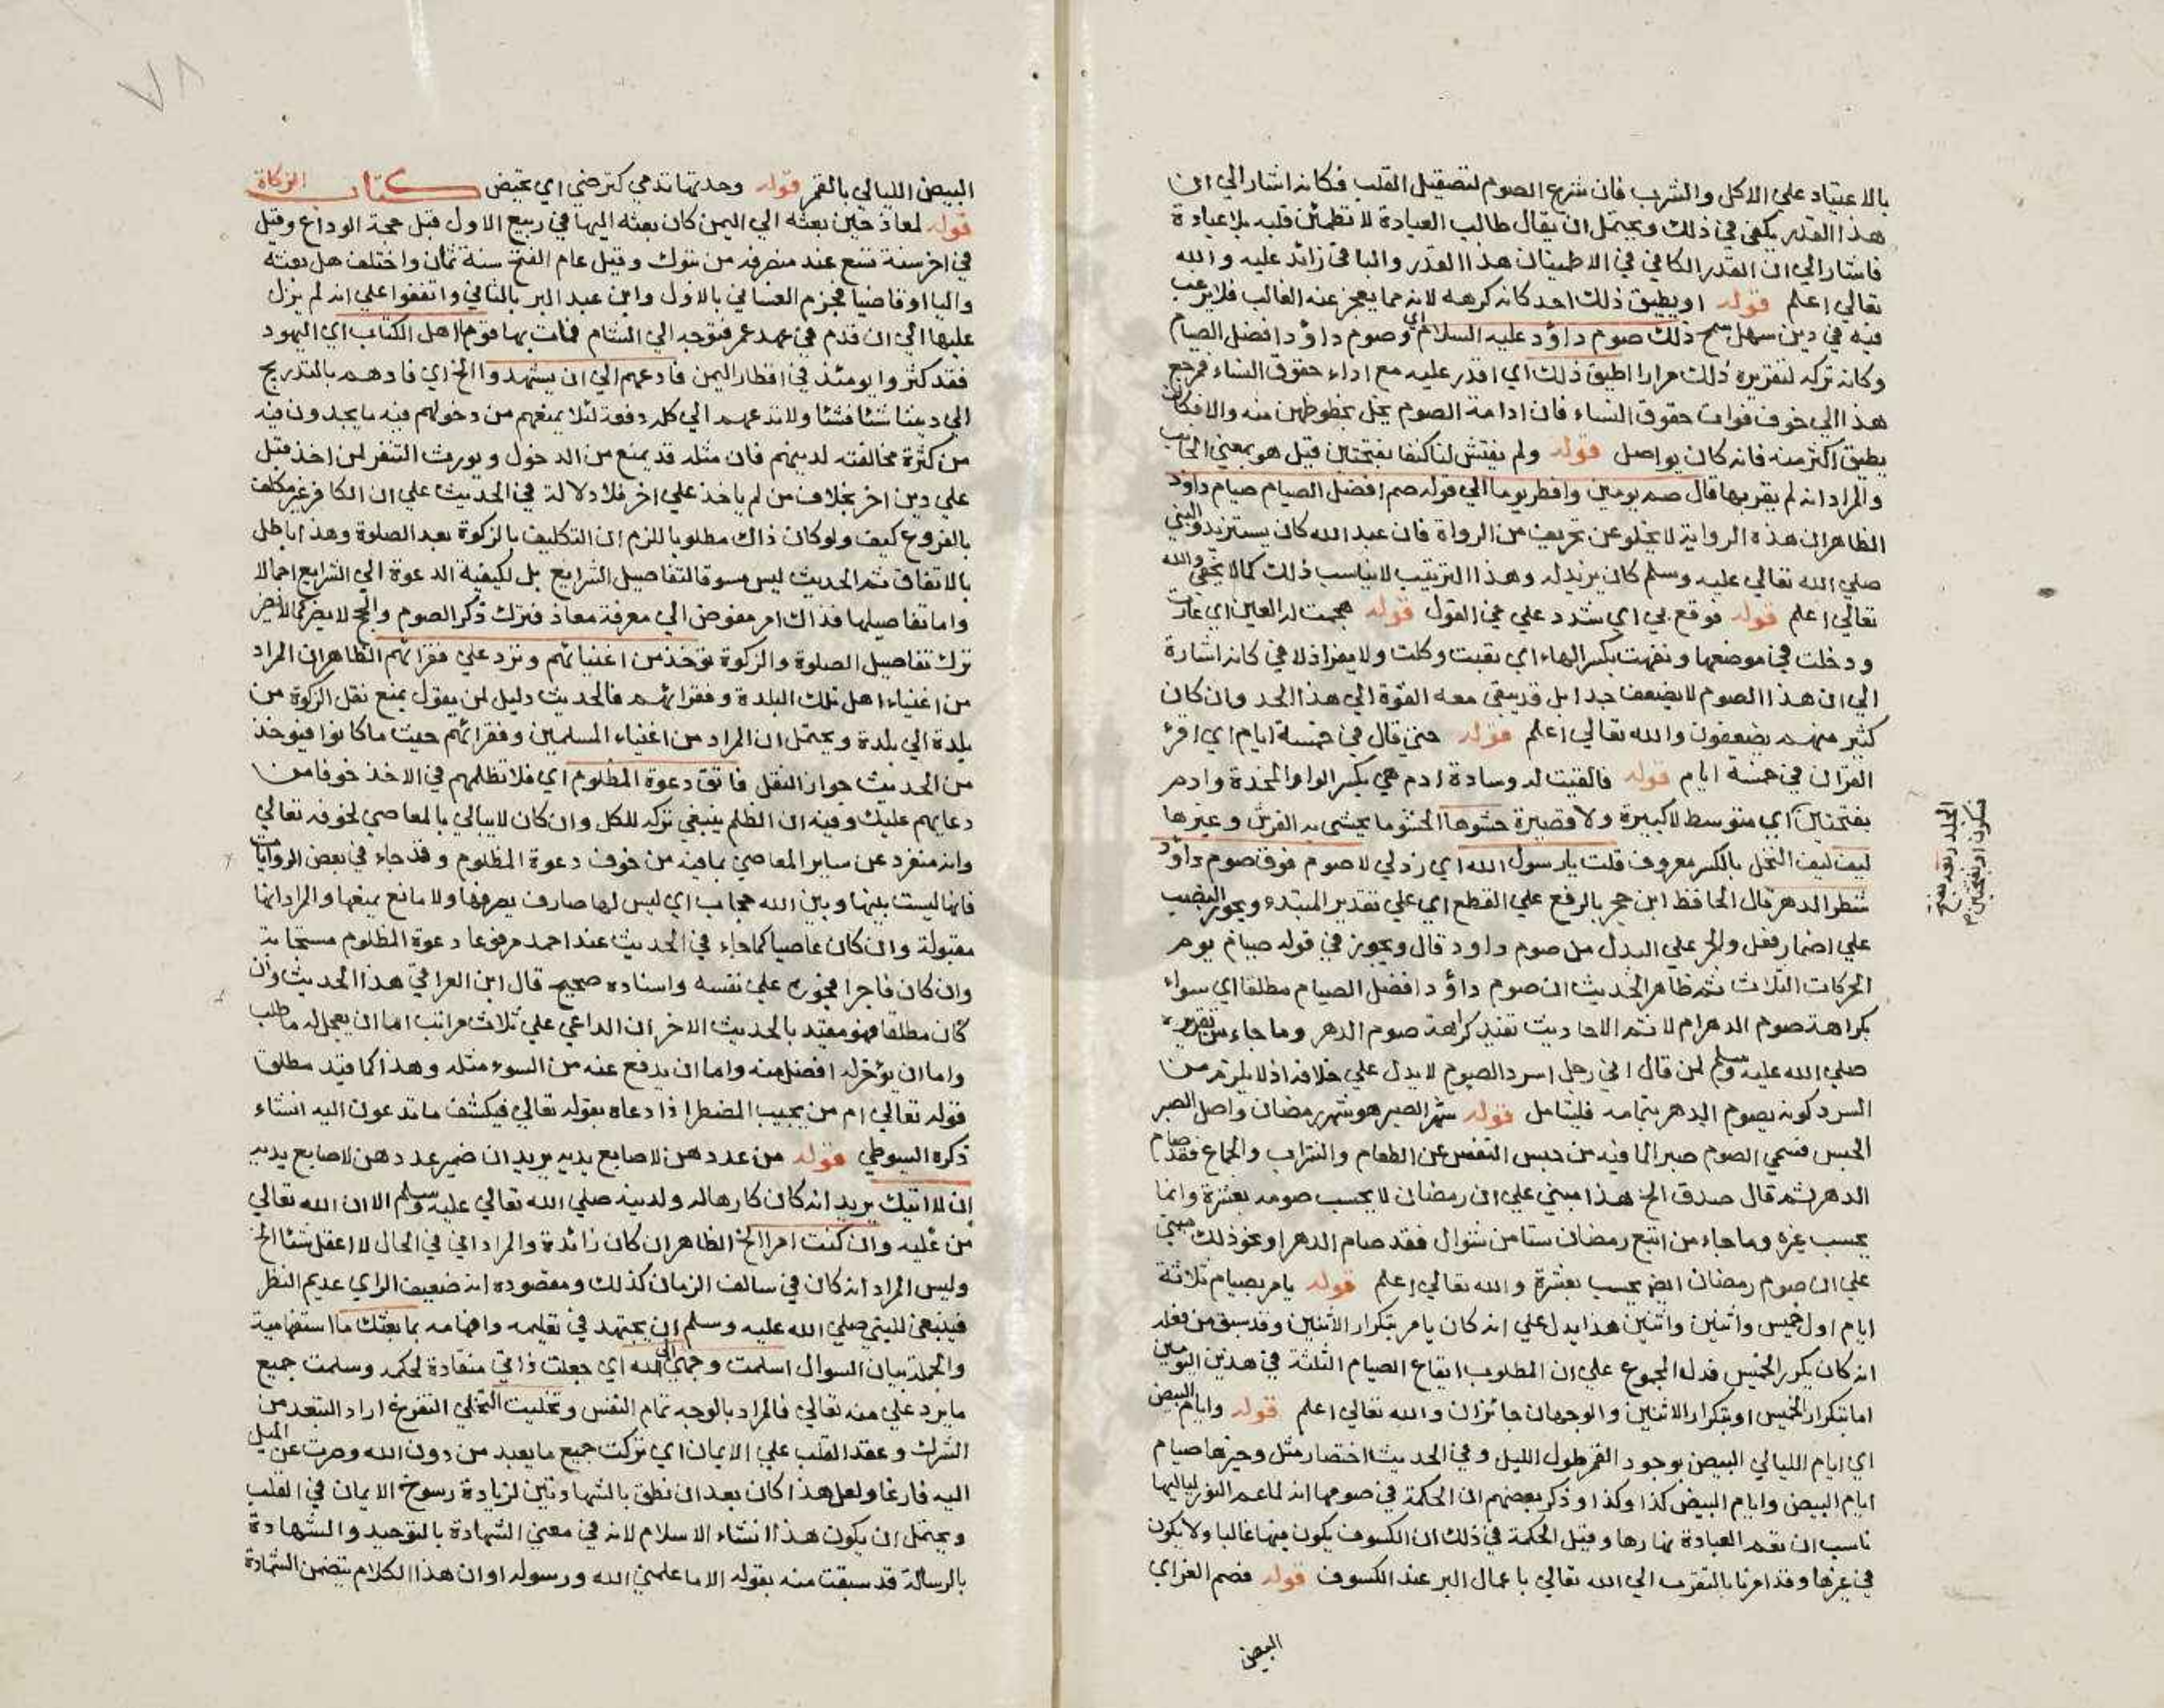 بالاعتياد علي الاكل والشرب فان شرع الصوم لتصقيل القلب فكانه اشار الي ان
هذا القدر يكفي في ذلك ويحتمل ان يقال طالب العبادة لا تطمئن قلبه بلا عبادة
فاشار الي ان القدر الكافي في الاطمينان هذا القدر والباقي زائد عليه والله
تعالي اعلم قوله او يطيق ذلك احد كانه كرهه لانه مما يعجز عنه الغالب فلا يرغب
فيه في دين سهل سمح ذلك صوم داؤد عليه السلام اي وصوم داؤد افضل الصيام
وكانه تركه لتقريره ذلك مرارا اطيق ذلك اي اقدر عليه مع اداء حقوق النساء فمرجع
هذا الي خوف فوات حقوق النساء فان ادامة الصوم يخل بحظوظهن منه والا فكان
يطيق اكثر منه فانه كان يواصل قوله ولم يفتش لنا كنفا بفتحتين قيل هو بمعني الجانب
والمراد انه لم يقربها قال صم يومين وافطر يوما الي قوله صم افضل الصيام صيام داؤد
الظاهر ان هذه الرواية لا يخلو عن تحريف من الرواة فان عبد الله كان يستزيد والنبي
صلي الله تعالي عليه وسلم كان يزيد له وهذا الترتيب لا يناسب ذلك كما لا يخفي والله
تعالي اعلم قوله فوقع بي اي شدد علي في القول قوله هجمت له العين اي غارت
ودخلت في موضعها ونفهت بكسر الهاء اي تعبت وكلت ولا يفر اذا لاقي كانه اشارة
الي ان هذا الصوم لا يضعف جدا بل قد يبقي معه القوة الي هذا الحد وان كان
كثير منهم يضعفون والله تعالي اعلم قوله حتي قال في خمسة ايام اي اقرء
القران في خمسة ايام قوله فالقيت له وسادة ادم هي بكسر الواو المخدة وادم
بفتحتين اي متوسط لا كبيرة ولا قصيرة حشوها الحشو ما يحشي به الفرش وغيرها
ليف ليف النخل بالكسر معروف قلت يا رسول الله اي زد لي لا صوم فوق صوم داؤد
شطر الدهر قال الحافظ ابن حجر بالرفع علي القطع اي علي تقدير المبتدء ويجوز النصب
علي اضمار فعل والجر علي البدل من صوم داود قال ويجوز في قوله صيام يوم
الحركات الثلاث ثم ظاهر الحديث ان صوم داؤد افضل الصيام مطلقا اي سواء
بكراهة صوم الدهر ام لا ثم الاحاديث تفيد كراهة صوم الدهر وما جاء من تقريره
صلي الله عليه وسلم لمن قال اني رجل اسرد الصوم لا يدل علي خلافه اذ لا يلزم من
السرد كونه يصوم الدهر بتمامه فليتامل قوله شهر الصبر هو شهر رمضان واصل الصبر
الحبس فسمي الصوم صبرا لما فيه من حبس النفس عن الطعام والشراب والجماع فقد صام
الدهر ثم قال صدق الخ هذا مبني علي ان رمضان لا يحسب صومه بعشرة وانما
يحسب غيره وما جاء من اتبع رمضان ستا من شوال فقد صام الدهر او نحو ذلك مبني
علي ان صوم رمضان ايضا يحسب بعشرة والله تعالي اعلم قوله يامر بصيام ثلاثة
ايام اول خميس واثنين واثنين هذا يدل علي انه كان يامر بتكرار الاثنين وقد سبق من فعله
انه كان يكرر الخميس فدل المجموع علي ان المطلوب ايقاع الصيام الثلثة في هذين اليومين
اما بتكرار الخميس او بتكرار الاثنين والوجهان جائزان والله تعالي اعلم قوله وايام البيض
اي ايام الليالي البيض بوجود القمر طول الليل وفي الحديث اختصار مثل وخيرها صيام
ايام البيض وايام البيض كذا وكذا وذكر بعضهم ان الحكمة في صومها انه لما عم النور لياليها
ناسب ان تعم العبادة نهارها وقيل الحكمة في ذلك ان الكسوف يكون فيها غالبا ولا يكون
في غيرها وقد امرنا بالتقرب الي الله تعالي باعمال البر عند الكسوف قوله فصم الغر اي
البيض
البيض الليالي بالقمر قوله وجدتها تدمي كترضي اي تحيض كتاب الزكاة
قوله لمعاذ حين بعثه الي اليمن كان بعثه اليها في ربيع الاول قبل حجة الوداع وقيل
في اخر سنة تسع عند منصرفه من تبوك وقيل عام الفتح سنة ثمان واختلف هل بعثه
واليا او قاضيا فجزم الغساني بالاول وابن عبد البر بالثاني واتفقوا علي انه لم يزل
عليها الي ان قدم في عهد عمر فتوجه الي الشام فمات بها قوما اهل الكتاب اي اليهود
فقد كثروا يومئذ في اقطار اليمن فادعهم الي ان يشهدوا الخ اي فادهم بالتدريج
الي ديننا شئا فشئا ولا تدعهم الي كله دفعة لئلا يمنعهم من دخولهم فيه ما يجدون فيه
من كثرة مخالفته لدينهم فان مثله قد يمنع من الدخول ويورث التنفر لمن اخذ قبل
علي دين اخر بخلاف من لم ياخذ علي اخر فلا دلالة في الحديث علي ان الكافر غير مكلف
بالفروع كيف ولو كان ذاك مطلوبا للزم ان التكليف بالزكوة بعد الصلوة وهذا باطل
بالاتفاق ثم الحديث ليس مسوقا لتفاصيل الشرايع بل لكيفية الدعوة الي الشرايع اجمالا
واما تفاصيلها فذاك امر مفوض الي معرفة معاذ فترك ذكر الصوم والحج لا يضر كما لا يضر
ترك تفاصيل الصلوة والزكوة توخذ من اغنيائهم وترد علي فقرائهم الظاهر ان المراد
من اغنياء اهل تلك البلدة وفقرائهم فالحديث دليل لمن يقول بمنع نقل الزكوة من
بلدة الي بلدة ويحتمل ان المراد من اغنياء المسلمين وفقرائهم حيث ما كانوا فيوخذ
من الحديث جواز النقل فاتق دعوة المظلوم اي فلا تظلمهم في الاخذ خوفا من
دعايهم عليك وفيه ان الظلم ينبغي تركه للكل وان كان لا يبالي بالمعاصي لخوفه تعالي
وانه منفرد عن ساير المعاصي بما فيه من خوف دعوة المظلوم وقد جاء في بعض الروايات
فانها ليست بينها وبين الله حجاب اي ليس لها صارف يصرفها ولا مانع يمنعها والمراد انها
مقبولة وان كان عاصيا كما جاء في الحديث عند احمد مرفوعا دعوة المظلوم مستجابة
وان كان فاجرا فجوره علي نفسه واسناده صحيح قال ابن العراقي هذا الحديث وان
كان مطلقا فهو مقيد بالحديث الاخر ان الداعي علي ثلاث مراتب اما ان يعجل له ما طلب
واما ان يوخر له افضل منه واما ان يدفع عنه من السوء مثله وهذا كما قيد مطلق
قوله تعالي ام من يجيب المضطر اذا دعاه بقوله تعالي فيكشف ما تدعون اليه انشاء
ذكره السيوطي قوله من عددهن لاصابع يديه يريد ان ضمير عددهن لاصابع يديه
ان لا اتيك يريد انه كان كارها له ولدينه صلي الله تعالي عليه وسلم الا ان الله تعالي
من عليه وان كنت امرا الخ الظاهر ان كان زائدة والمراد اني في الحال لا اعقل شئا الخ
وليس المراد انه كان في سالف الزمان كذلك ومقصوده انه ضعيف الراي عديم النظر
فينبغي للنبي صلي الله عليه وسلم ان يجتهد في تعليمه وافهامه بما بعثك ما استفهامية
والجملة بيان السوال اسلمت وجهي الي الله اي جعلت ذاتي منقادة لحكمه وسلمت جميع
ما يرد علي منه تعالي فالمراد بالوجه تمام النفس وتخليت التخلي التفرغ اراد التبعد من
الشرك وعقد القلب علي الايمان اي تركت جميع ما يعبد من دون الله وصرت عن الميل
اليه فارغا ولعل هذا كان بعد ان نطق بالشهادتين لزيادة رسوخ الايمان في القلب
ويحتمل ان يكون هذا انشاء الاسلام لانه في معني الشهادة بالتوحيد والشهادة
بالرسالة قد سبقت منه بقوله الا ما علمني الله ورسوله او ان هذا الكلام يتضمن الشهادة
٧٨